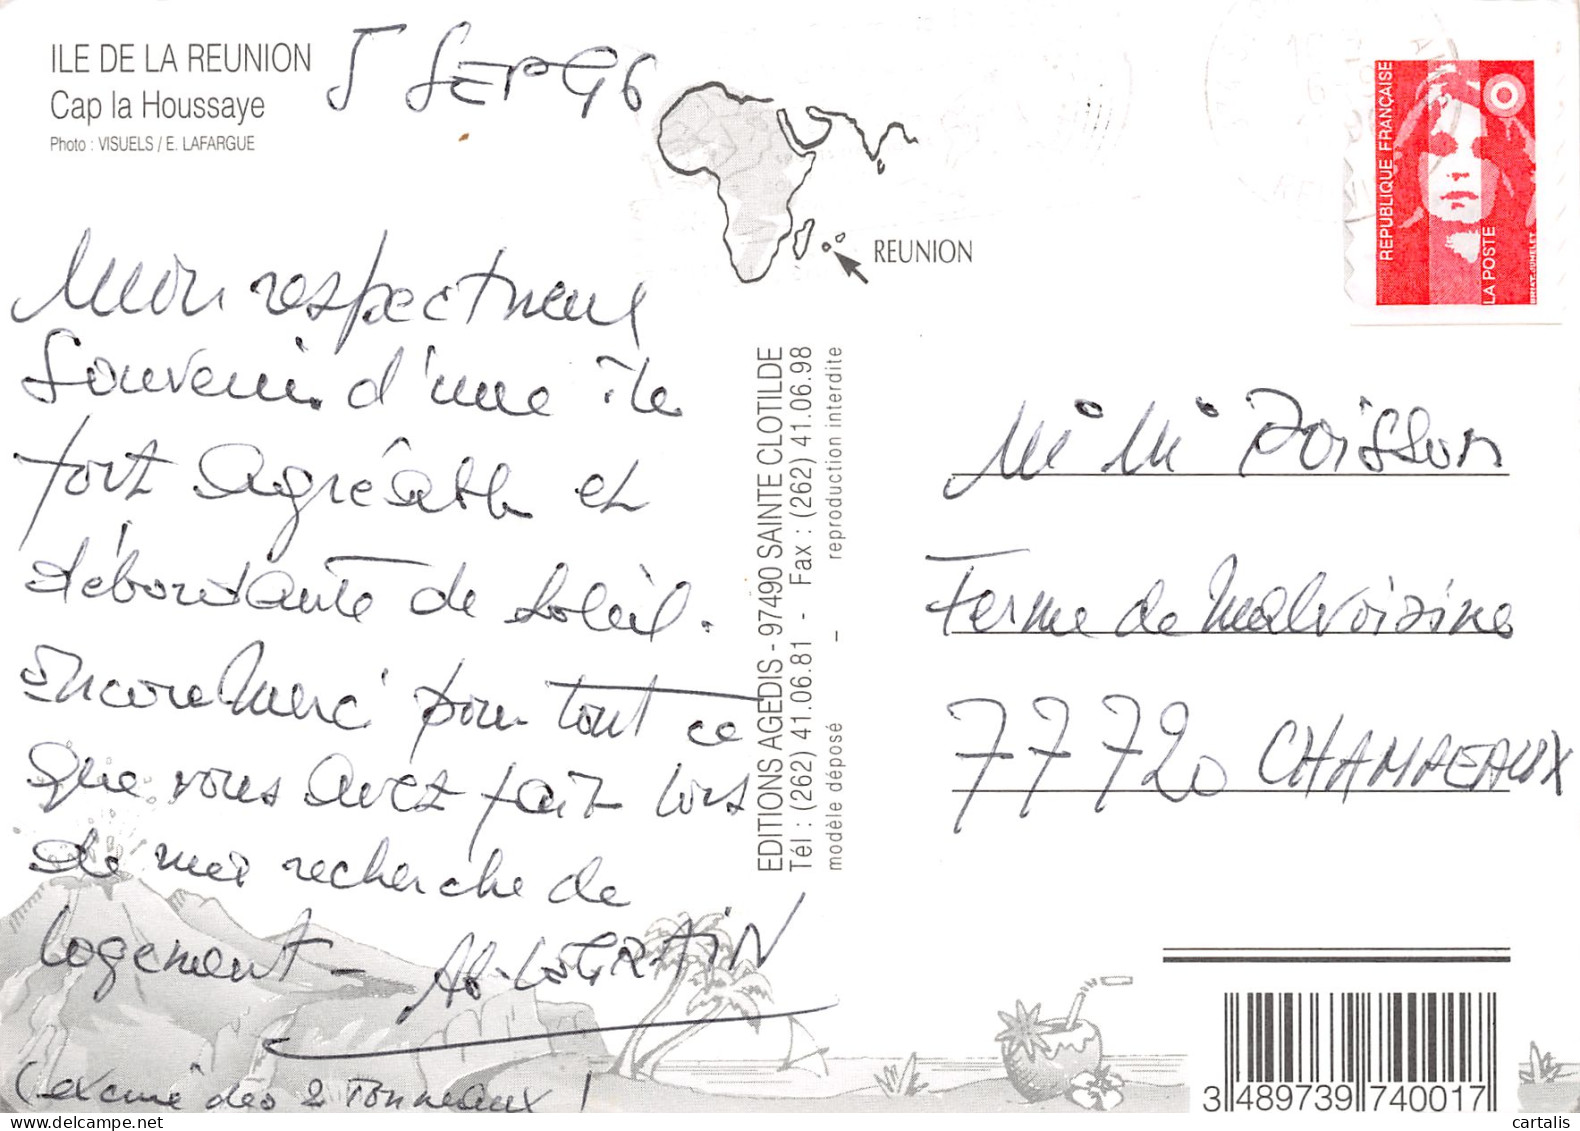 ILE DE LA REUNION
Cap la Houssaye
Photo : VISUELS / E. LAFARGUE
5 SEP 96
REUNION
REPUBLIQUE FRANÇAISE
LA POSTE
BRIAT-JUMELET
Mon respectueux
souvenir d'une île
fort agréable et
débordante de soleil.
Encore merci pour tout ce
que vous avez fait lors
de ma recherche de
logement -
(ex curé des 2 Tonneaux !
EDITIONS AGEDIS - 97490 SAINTE CLOTILDE
Tél : (262) 41.06.81 - Fax : (262) 41.06.98
modèle déposé – reproduction interdite
Mr Mme Poisson
Ferme de Malvoisine
77720 CHAMPEAUX
3 489739 740017
cartalis